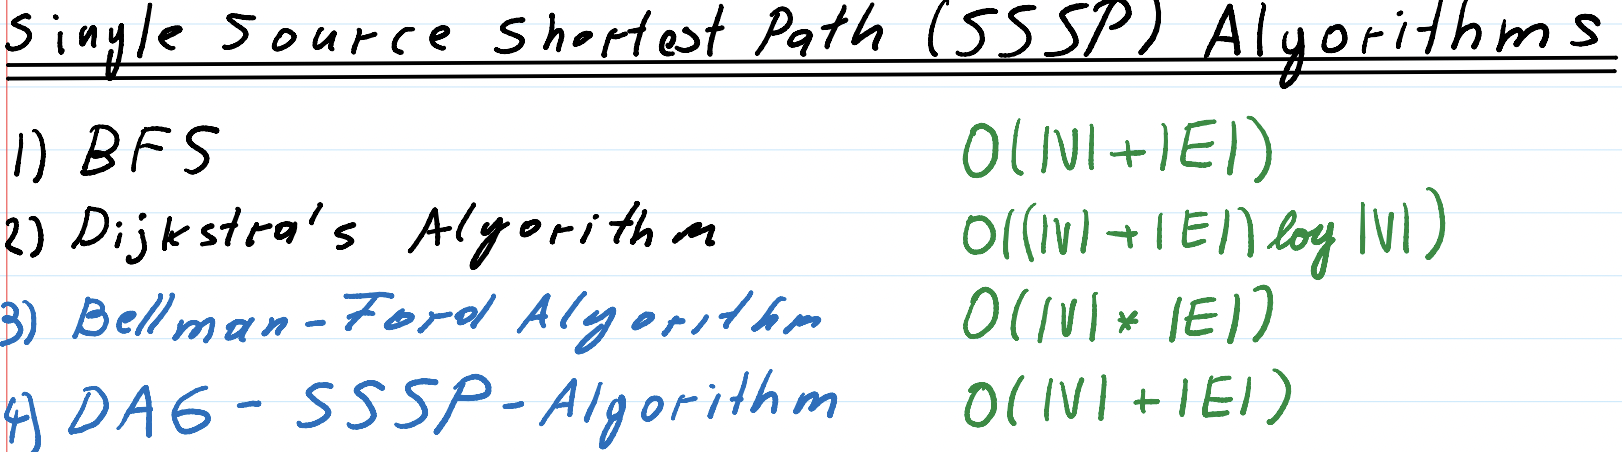 Single Source Shortest Path (SSSP) Algorithms
1) BFS O(|V| + |E|)
2) Dijkstra's Algorithm O((|V| + |E|) log |V|)
3) Bellman-Ford Algorithm O(|V| * |E|)
4) DAG - SSSP - Algorithm O(|V| + |E|)